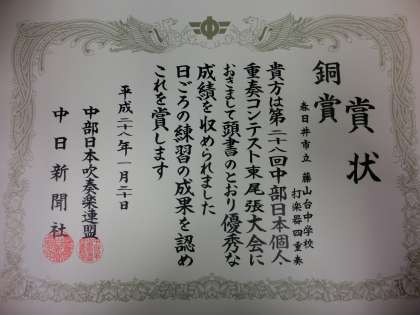 賞状
銅賞
春日井市立 藤山台中学校
打楽器四重奏
貴方は第二十八回中部日本個人・
重奏コンテスト東尾張大会に
おきまして頭書のとおり優秀な
成績を収められました
日ごろの練習の成果を認め
これを賞します
平成二十八年一月二十日
中部日本吹奏楽連盟
中日新聞社